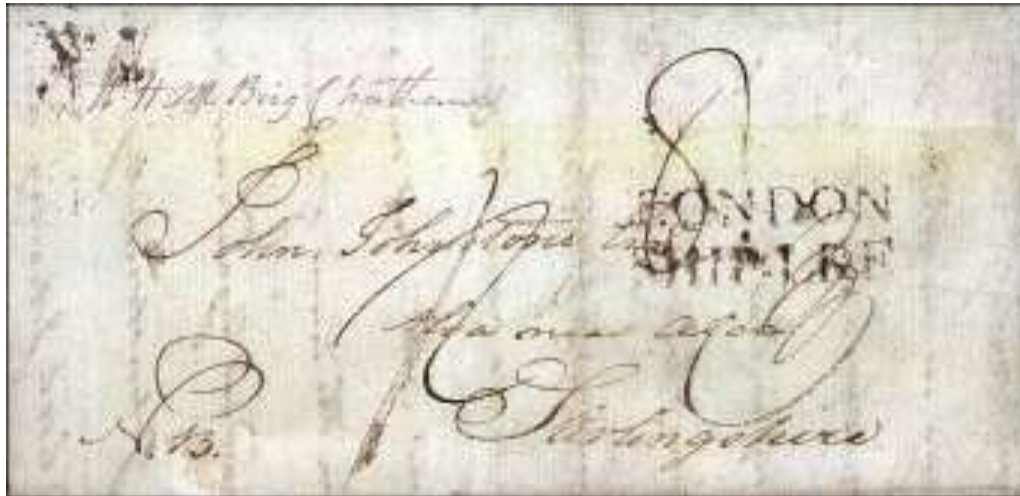 H M Brig Chatham
LONDON
SHIP-LRE
John Johnstone Esq
Alva near Alloa
Stirlingshire
N.B.